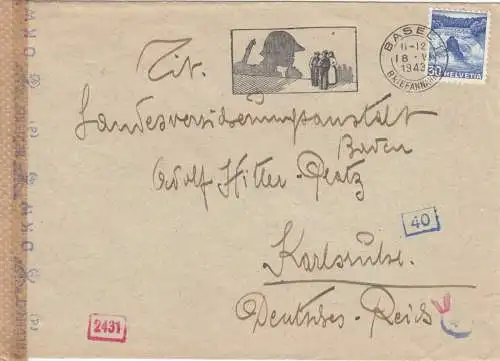 BASEL
11-12
18 V
1943
BRIEFANNAHME
30 HELVETIA
Tit.
Landesversicherungsanstalt
Baden
Adolf Hitler-Platz
40
Karlsruhe.
Deutsches-Reich
2431
OKW
OKW